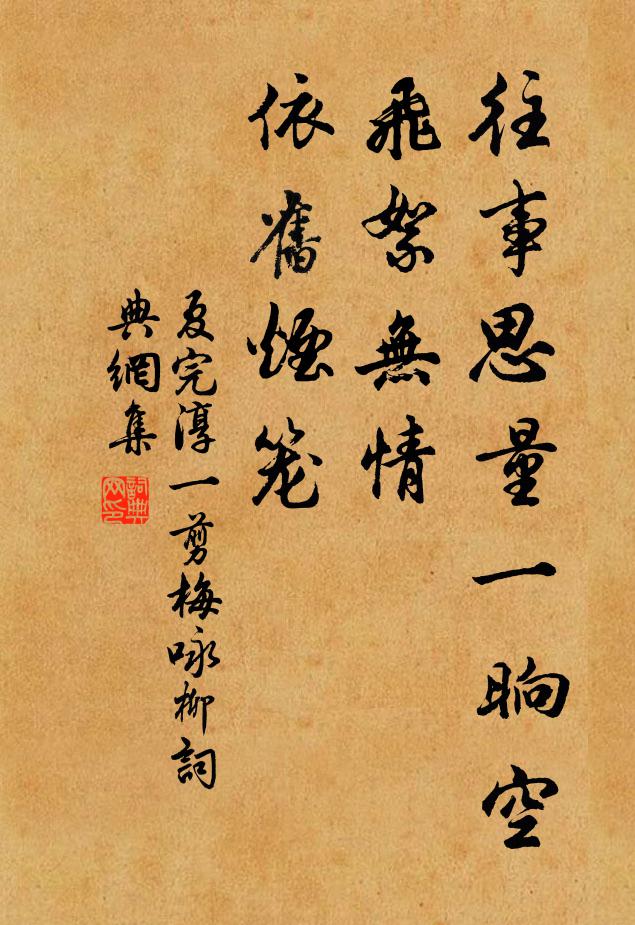 往事思量一晌空
飛絮無情
依舊煙笼
夏完淳一剪梅咏柳詞
典網集
詞典網印